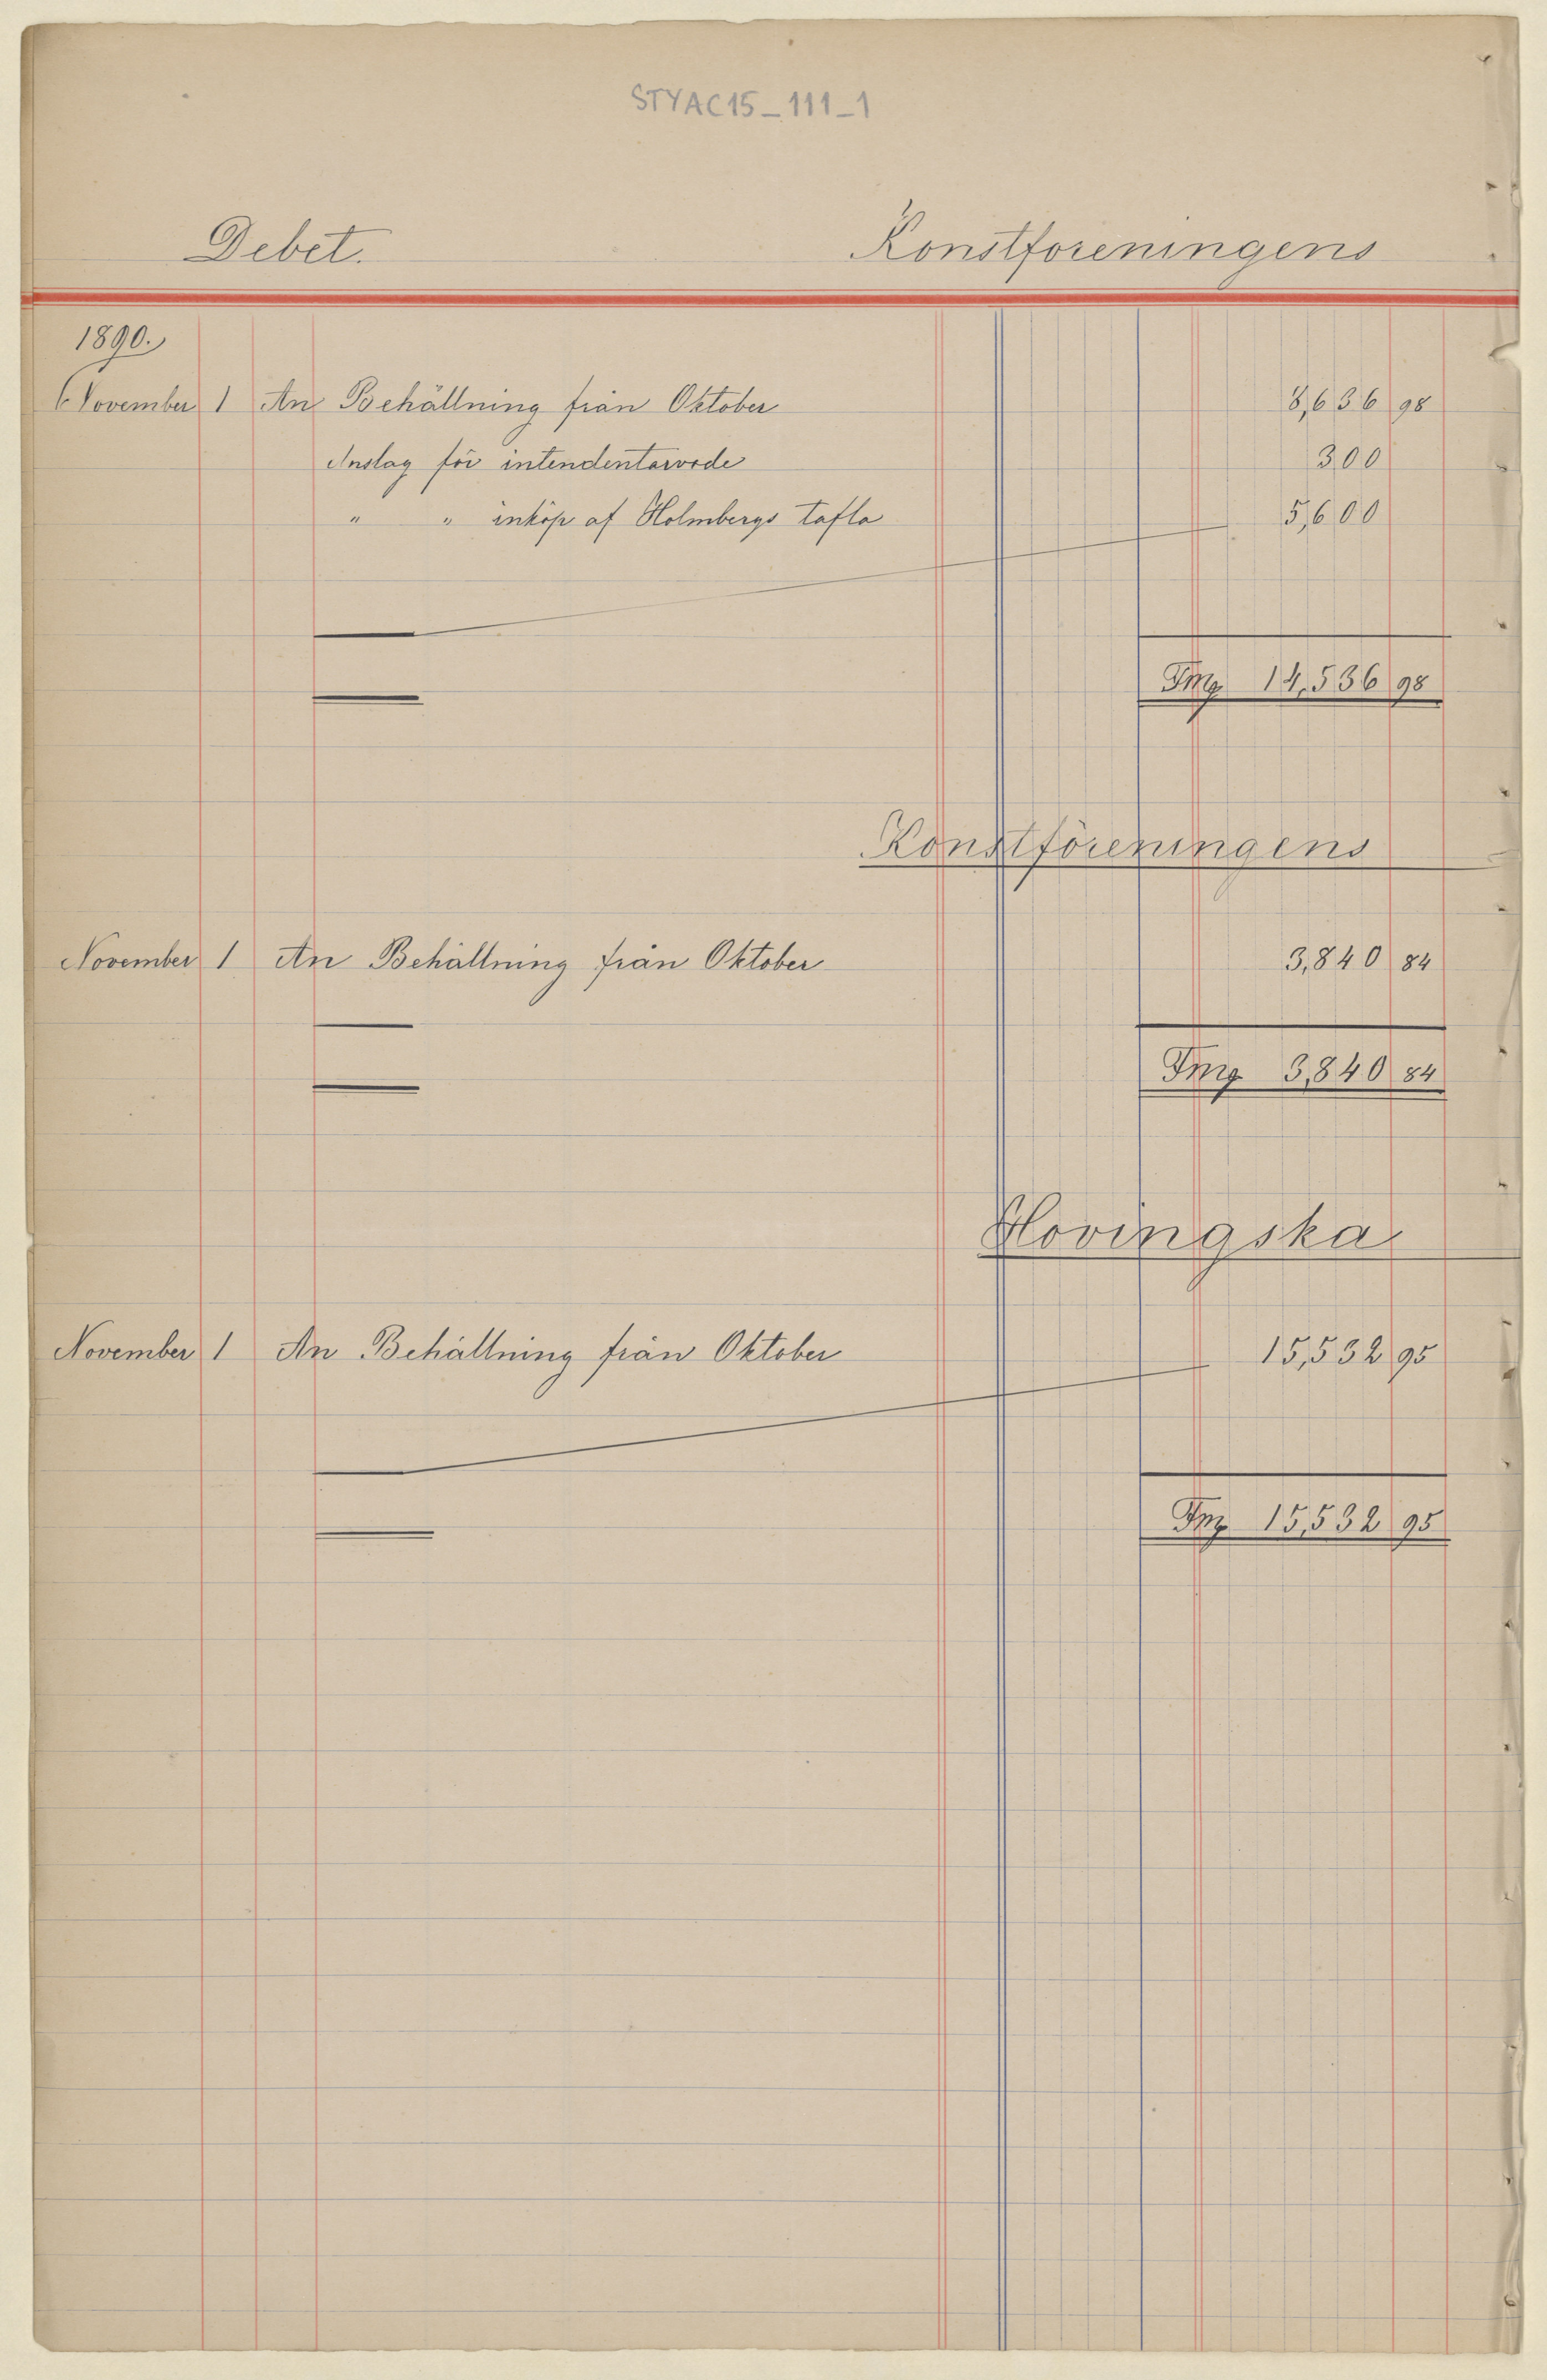 STYAC15_111_1
Debet. Konstforeningens
1890.
November 1 An Behållning från Oktober 8,636 98
Anslag för intendentarvode 300
" " inköp af Holmbergs tafla 5,600
Fmg 14,536 98
Konstföreningens
November 1 An Behållning från Oktober 3,840 84
Fmg 3,840 84
Hovingska
November 1 An Behållning från Oktober 15,532 95
Fmg 15,532 95